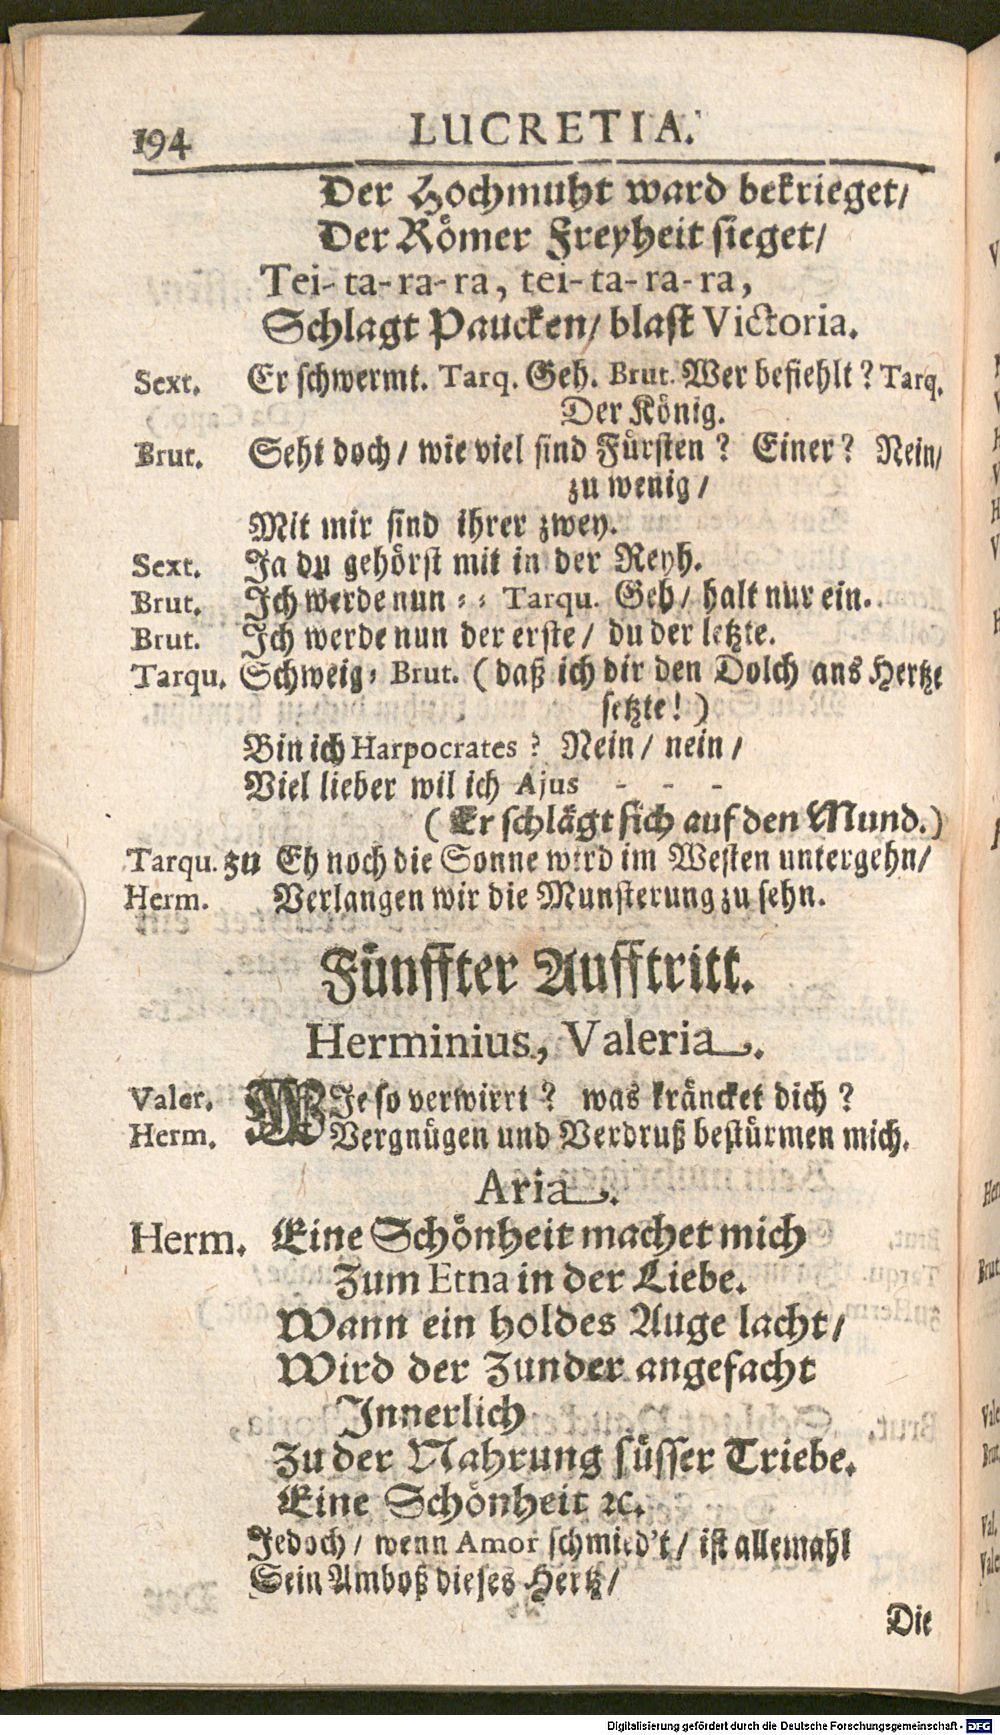 194 LUCRETIA.
Der Hochmuht ward bekrieget/
Der Römer Freyheit sieget/
Tei-ta-ra-ra, tei-ta-ra-ra,
Schlagt Paucken/ blast Victoria.
Sext. Er schwermt. Tarq. Geh. Brut. Wer befiehlt? Tarq.
Der König.
Brut. Seht doch/ wie viel sind Fürsten? Einer? Nein/
zu wenig/
Mit mir sind ihrer zwey.
Sext. Ja du gehörst mit in der Reyh.
Brut. Ich werde nun ⸗ ⸗ Tarqu. Geh/ halt nur ein.
Brut. Ich werde nun der erste/ du der letzte.
Tarqu. Schweig⸗ Brut. (daß ich dir den Dolch ans Hertze
setzte!)
Bin ich Harpocrates? Nein/ nein/
Viel lieber wil ich Ajus - - -
(Er schlägt sich auf den Mund.)
Tarqu. zu Eh noch die Sonne wird im Westen untergehn/
Herm. Verlangen wir die Munsterung zu sehn.
Fünffter Aufftritt.
Herminius, Valeria.
Valer. WIe so verwirrt? was kräncket dich?
Herm. Vergnügen und Verdruß bestürmen mich.
Aria.
Herm. Eine Schönheit machet mich
Zum Etna in der Liebe.
Wann ein holdes Auge lacht/
Wird der Zunder angefacht
Innerlich
Zu der Nahrung süsser Triebe.
Eine Schönheit ꝛc.
Jedoch/ wenn Amor schmied't/ ist allemahl
Sein Amboß dieses Hertz/
Die
Digitalisierung gefördert durch die Deutsche Forschungsgemeinschaft - DFG